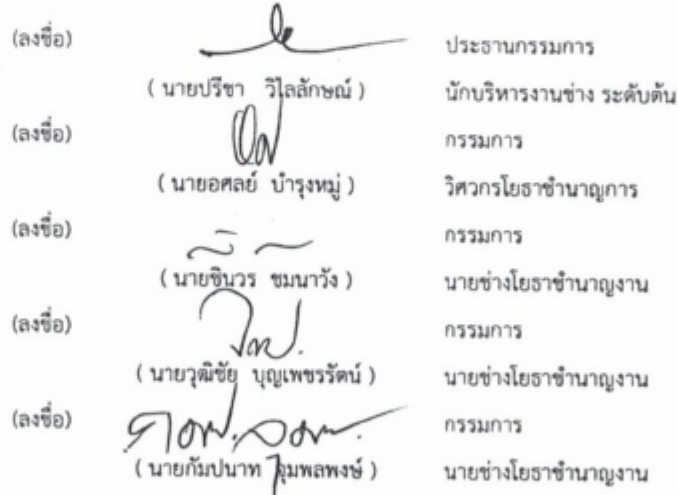 (ลงชื่อ) ประธานกรรมการ
( นายปรีชา วิไลลักษณ์ ) นักบริหารงานช่าง ระดับต้น
(ลงชื่อ) กรรมการ
( นายอศลย์ บำรุงหมู่ ) วิศวกรโยธาชำนาญการ
(ลงชื่อ) กรรมการ
( นายชินวร ชมนาวัง ) นายช่างโยธาชำนาญงาน
(ลงชื่อ) กรรมการ
( นายวุฒิชัย บุญเพชรรัตน์ ) นายช่างโยธาชำนาญงาน
(ลงชื่อ) กรรมการ
( นายกัมปนาท จุมพลพงษ์ ) นายช่างโยธาชำนาญงาน